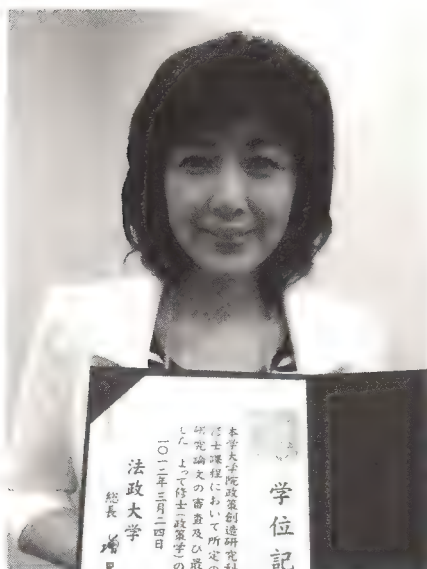 学位記
本学大学院政策創造研究科
修士課程において所定の
研究論文の審査及び最
した よって修士(政策学)の
二〇一二年三月二四日
法政大学
総長 増